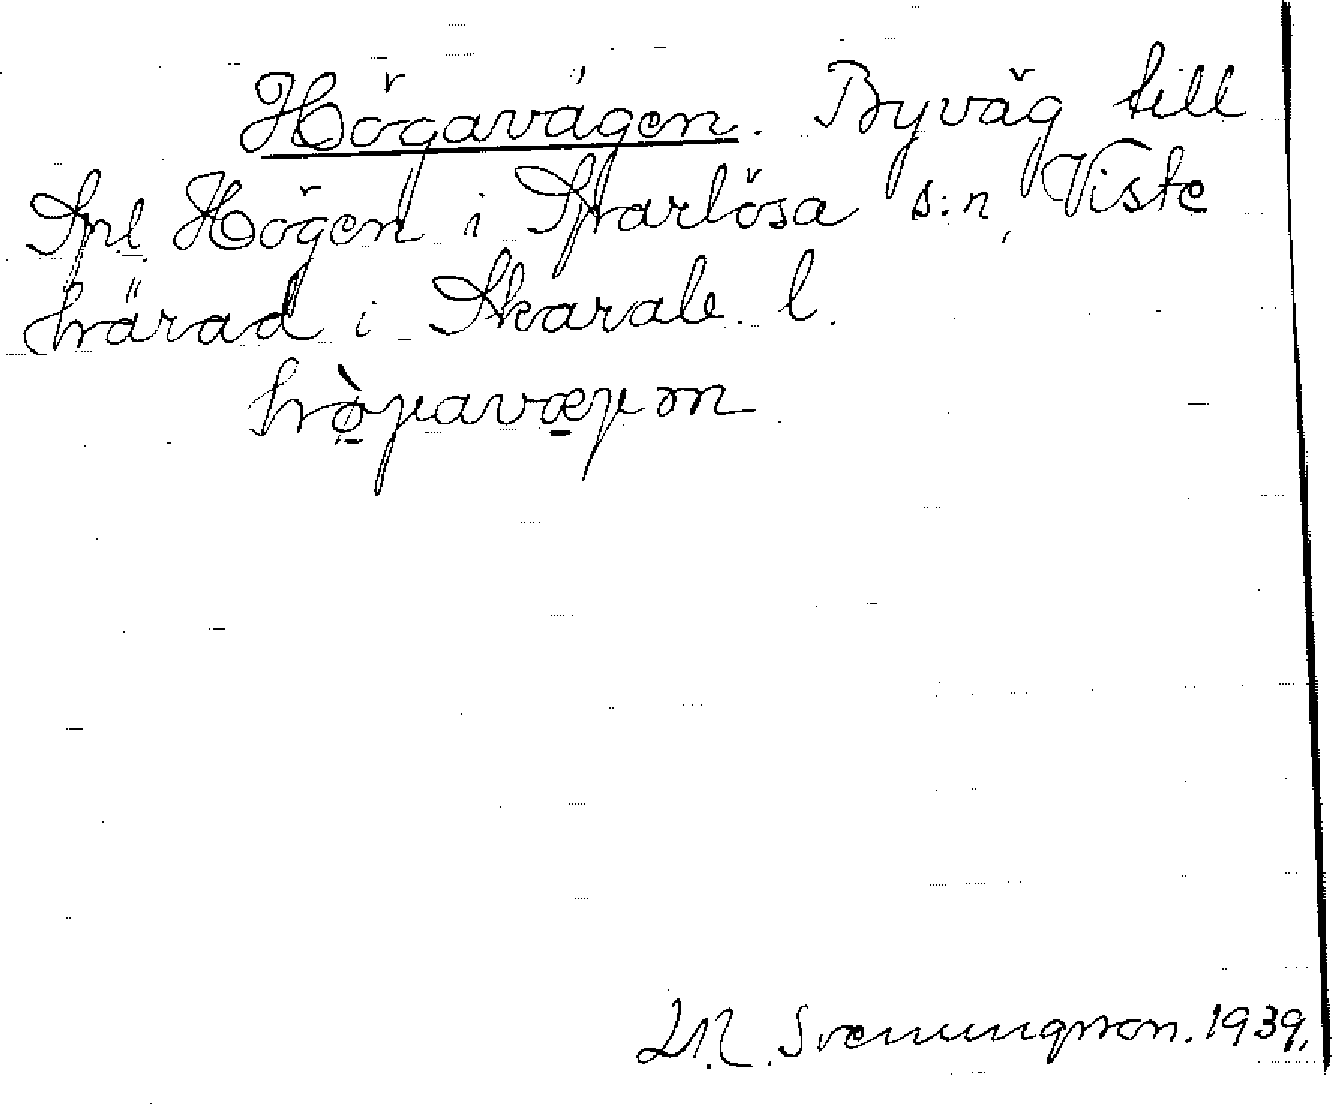 Högavägen. Byväg till
Spl Högen i Sparlösa s:n, Viste
härad i Skarab. l.
hò̱γavæ̱γən
Svenungsson. 1939.